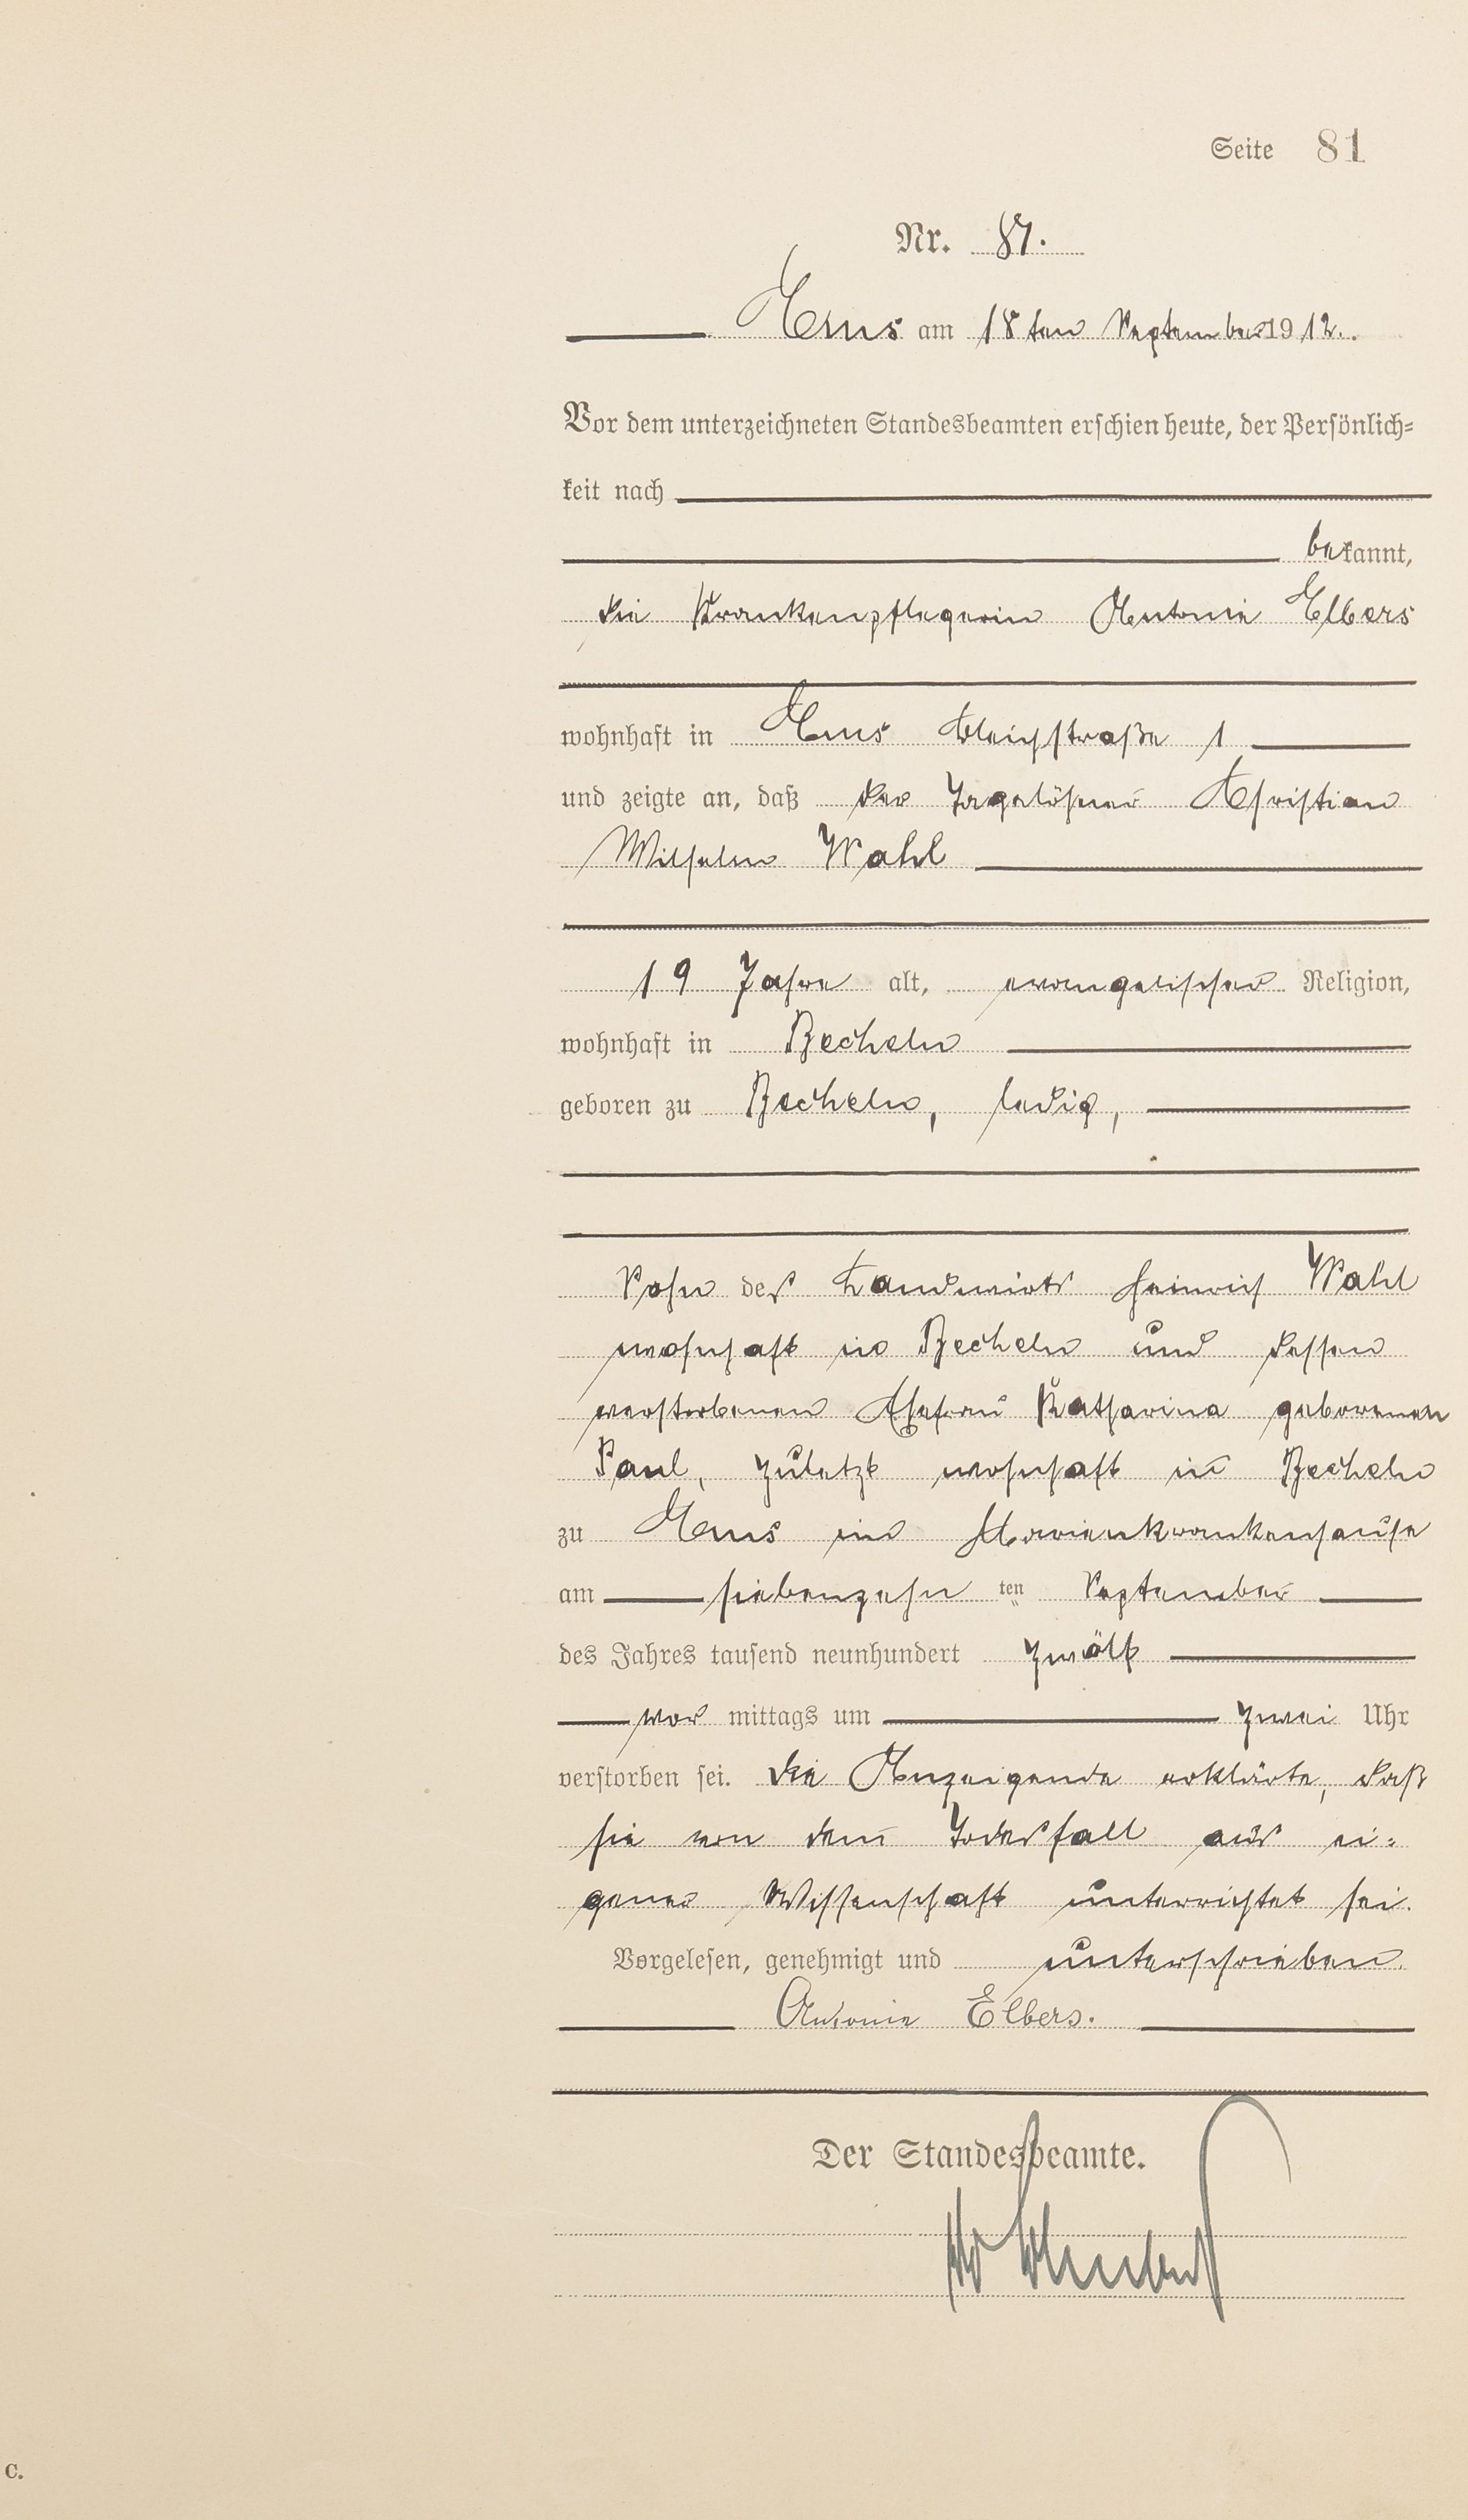 Seite 81
Nr. 81.
Ems am 18ten September 1912.
Vor dem unterzeichneten Standesbeamten erschien heute, der Persönlich-
keit nach
bekannt,
die Krankenpflegerin Antonie Elbers
wohnhaft in Ems Bleichstraße 1
und zeigte an, daß der Tagelöhner Christian
Wilhelm Wahl
19 Jahre alt, evangelischer Religion,
wohnhaft in Becheln
geboren zu Becheln, ledig,
Sohn des Landwirts Heinrich Wahl
wohnhaft in Becheln und dessen
verstorbenen Ehefrau Katharina geborenen
Paul, zuletzt wohnhaft in Becheln
zu Ems im Marienkrankenhause
am siebenzehn ten September
des Jahres tausend neunhundert zwölf
vor mittags um zwei Uhr
verstorben sei. Die Anzeigende erklärte, daß
sie von dem Todesfall aus ei-
gener Wissenschaft unterrichtet sei.
Vorgelesen, genehmigt und unterschrieben
Antonie Elbers.
Der Standesbeamte.
C.